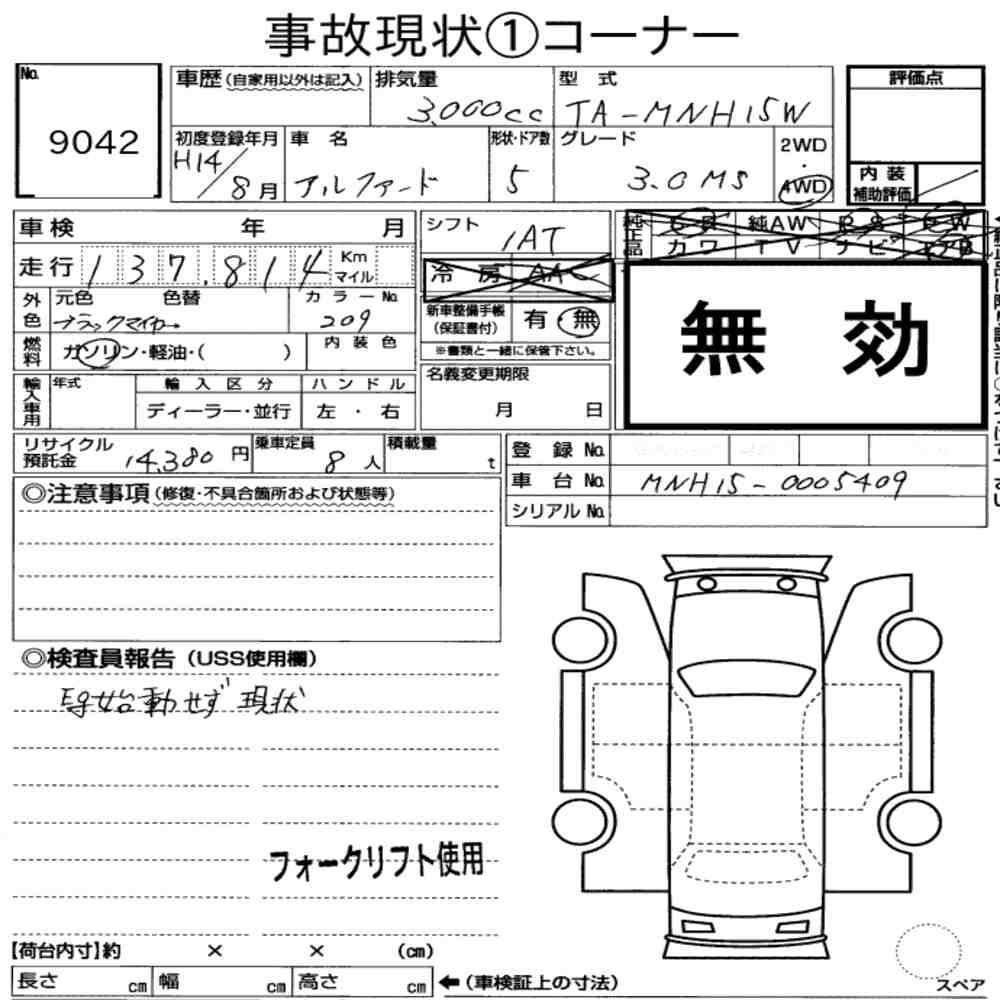 事故現状①コーナー
No.
9042
車歴(自家用以外は記入)
排気量
3,000cc
型 式
TA-MNH15W
評価点
初度登録年月
H14/8月
車 名
アルファード
形状・ドア数
5
グレード
3.0 MS
2WD
・
4WD
内 装
補助評価
車検 年 月
シフト
IAT
純正品
S R 純AW P S P W
カワ TV ナビ エアB
走行 137,814 Km
マイル
冷 房 AAC
無 効
外色
元色 色替
ブラックマイカー
カラーNo.
209
新車整備手帳
(保証書付)
有・無
※書類と一緒に保管下さい。
燃料
ガソリン・軽油・( )
内 装 色
名義変更期限
月 日
輸入車用
年式
輸 入 区 分
ハ ン ド ル
ディーラー・並行
左 ・ 右
リサイクル
預託金 14,380 円
乗車定員
8 人
積載量
t
登 録 No.
車 台 No. MNH15-0005409
シリアル No.
◎注意事項(修復・不具合箇所および状態等)
◎検査員報告(USS使用欄)
E/g始動せず 現状
フォークリフト使用
【荷台内寸】約 × × (cm)
長さ cm 幅 cm 高さ cm
←(車検証上の寸法)
スペア